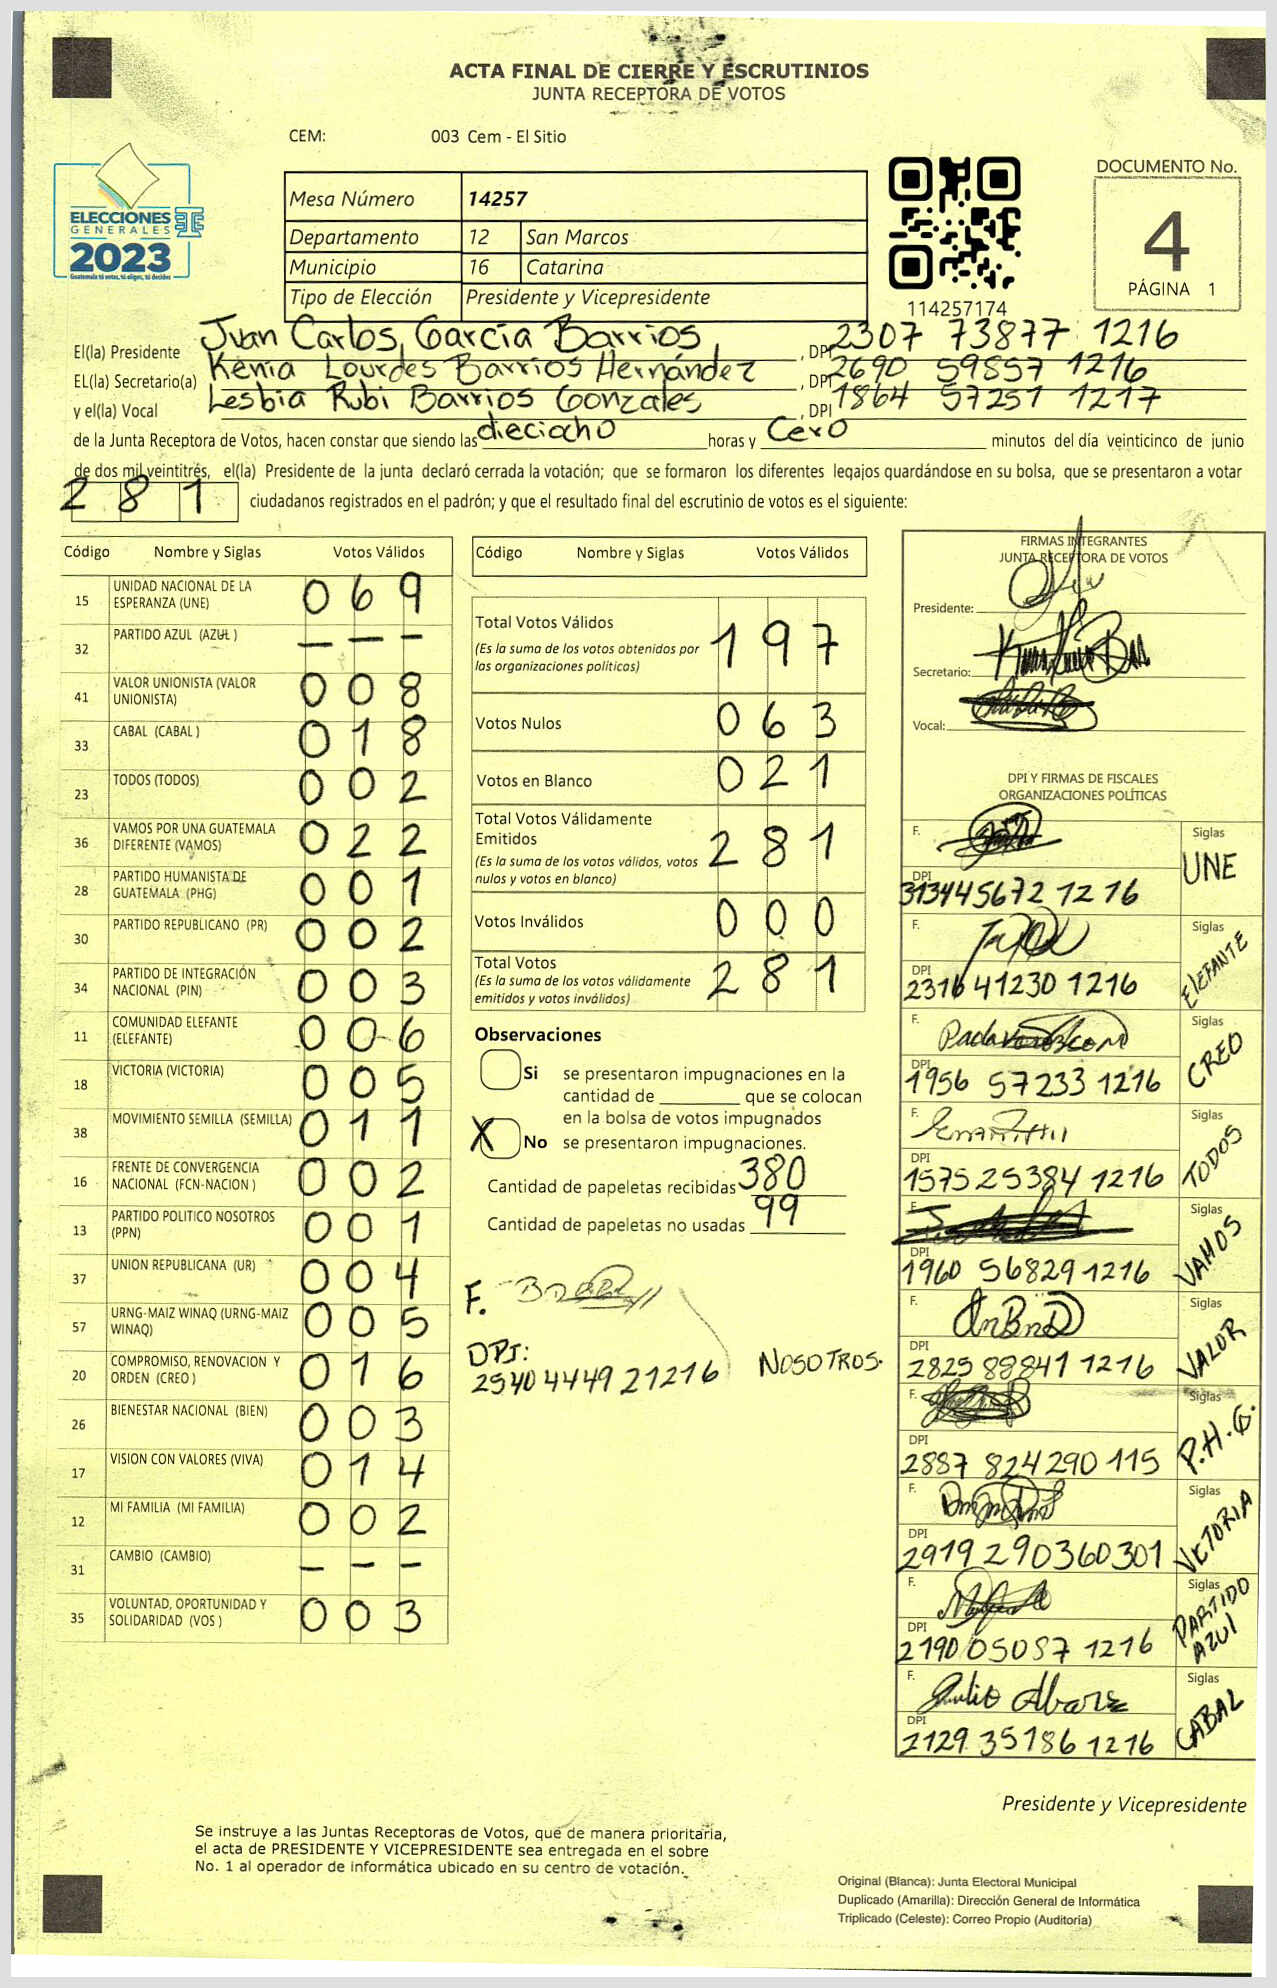 ACTA FINAL DE CIERRE Y ESCRUTINIOS
JUNTA RECEPTORA DE VOTOS
CEM: 003 Cem - El Sitio
ELECCIONES
GENERALES
2023
Guatemala tú votas, tú eliges, tú decides
Mesa Número 14257
Departamento 12 San Marcos
Municipio 16 Catarina
Tipo de Elección Presidente y Vicepresidente
114257174
DOCUMENTO No.
4
PÁGINA 1
El(la) Presidente Juan Carlos García Barrios, DPI 2307 73877 1216
EL(la) Secretario(a) Kenia Lourdes Barrios Hernández, DPI 2690 59857 1216
y el(la) Vocal Lesbia Rubi Barrios Gonzales, DPI 1864 57251 1217
de la Junta Receptora de Votos, hacen constar que siendo las dieciocho horas y Cero minutos del día veinticinco de junio
de dos mil veintitrés, el(la) Presidente de la junta declaró cerrada la votación; que se formaron los diferentes legajos guardándose en su bolsa, que se presentaron a votar
281 ciudadanos registrados en el padrón; y que el resultado final del escrutinio de votos es el siguiente:
Código Nombre y Siglas Votos Válidos
15 UNIDAD NACIONAL DE LA ESPERANZA (UNE) 069
32 PARTIDO AZUL (AZUL ) - - -
41 VALOR UNIONISTA (VALOR UNIONISTA) 008
33 CABAL (CABAL ) 018
23 TODOS (TODOS) 002
36 VAMOS POR UNA GUATEMALA DIFERENTE (VAMOS) 022
28 PARTIDO HUMANISTA DE GUATEMALA (PHG) 001
30 PARTIDO REPUBLICANO (PR) 002
34 PARTIDO DE INTEGRACIÓN NACIONAL (PIN) 003
11 COMUNIDAD ELEFANTE (ELEFANTE) 006
18 VICTORIA (VICTORIA) 005
38 MOVIMIENTO SEMILLA (SEMILLA) 011
16 FRENTE DE CONVERGENCIA NACIONAL (FCN-NACION ) 002
13 PARTIDO POLITICO NOSOTROS (PPN) 001
37 UNION REPUBLICANA (UR) 004
57 URNG-MAIZ WINAQ (URNG-MAIZ WINAQ) 005
20 COMPROMISO, RENOVACION Y ORDEN (CREO ) 016
26 BIENESTAR NACIONAL (BIEN) 003
17 VISION CON VALORES (VIVA) 014
12 MI FAMILIA (MI FAMILIA) 002
31 CAMBIO (CAMBIO) - - -
35 VOLUNTAD, OPORTUNIDAD Y SOLIDARIDAD (VOS ) 003
Código Nombre y Siglas Votos Válidos
Total Votos Válidos 197
(Es la suma de los votos obtenidos por
las organizaciones políticas)
Votos Nulos 063
Votos en Blanco 021
Total Votos Válidamente
Emitidos 281
(Es la suma de los votos válidos, votos
nulos y votos en blanco)
Votos Inválidos 000
Total Votos 281
(Es la suma de los votos válidamente
emitidos y votos inválidos)
Observaciones
Si se presentaron impugnaciones en la
cantidad de ________ que se colocan
en la bolsa de votos impugnados
X No se presentaron impugnaciones.
Cantidad de papeletas recibidas 380
Cantidad de papeletas no usadas 99
F.
DPI:
2540 4449 21216 NOSOTROS.
FIRMAS INTEGRANTES
JUNTA RECEPTORA DE VOTOS
Presidente:
Secretario:
Vocal:
DPI Y FIRMAS DE FISCALES
ORGANIZACIONES POLÍTICAS
F. Siglas UNE
DPI 313445672 1216
F. Siglas ELEFANTE
DPI 2316 41230 1216
F. Siglas CREO
DPI 1956 57233 1216
F. Siglas TODOS
DPI 1575 25384 1216
F. Siglas VAMOS
DPI 1960 56829 1216
F. Siglas VALOR
DPI 2825 88841 1216
F. Siglas P.H.G.
DPI 2887 824290 115
F. Siglas VICTORIA
DPI 2919 290360301
F. Siglas PARTIDO AZUL
DPI 2190 05087 1216
F. Julio Alvarez Siglas CABAL
DPI 2129 35186 1216
Presidente y Vicepresidente
Se instruye a las Juntas Receptoras de Votos, que de manera prioritaria,
el acta de PRESIDENTE Y VICEPRESIDENTE sea entregada en el sobre
No. 1 al operador de informática ubicado en su centro de votación.
Original (Blanca): Junta Electoral Municipal
Duplicado (Amarilla): Dirección General de Informática
Triplicado (Celeste): Correo Propio (Auditoría)